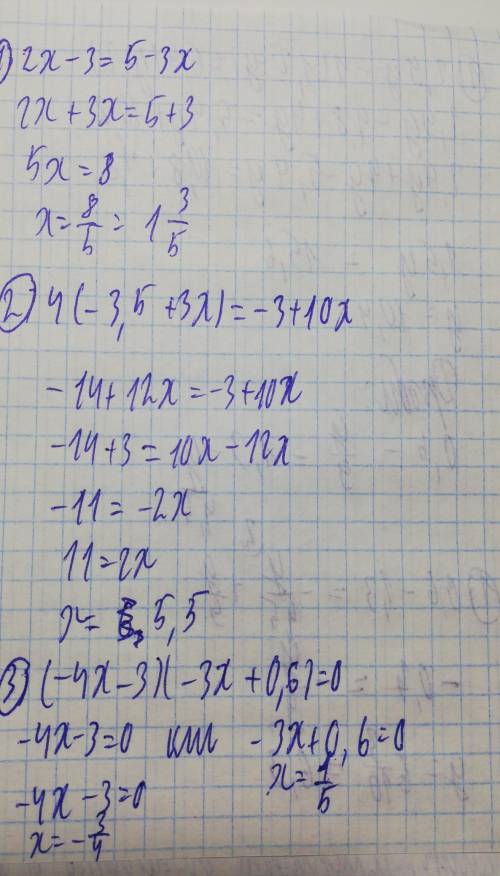 1) 2x-3=5-3x
2x+3x=5+3
5x=8
x=8/5=1 3/5
2) 4(-3,5+3x)=-3+10x
-14+12x=-3+10x
-14+3=10x-12x
-11=-2x
11=2x
x=5,5
3) (-4x-3)(-3x+0,6)=0
-4x-3=0 или -3x+0,6=0
x=1/5
-4x-3=0
x=-3/4